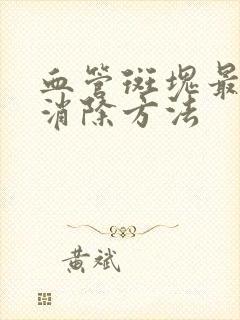 血管斑塊最
消除方法
黄斌